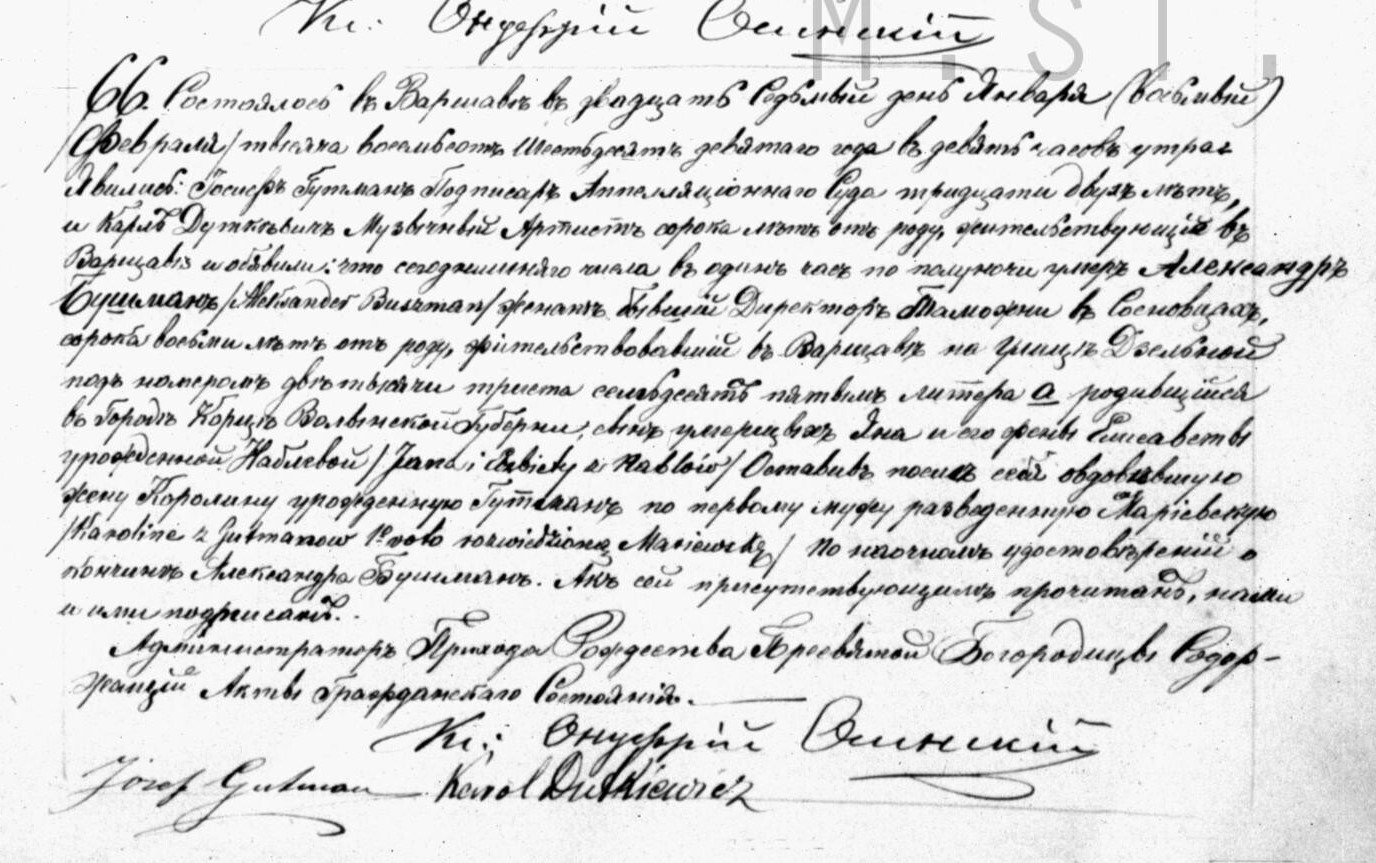 Кс: Онуфрій Осинскій
M.ST.
66. Состоялось въ Варшавѣ въ двадцать седьмый день Января (восьмый)
/Февраля/ тысяча восемьсотъ шестьдесятъ девятаго года въ девять часовъ утра.
Явились: Іосифъ Гутманъ Подписарь Аппелляціоннаго Суда тридцати двухъ лѣтъ,
и Карлъ Дуткевичъ Музычный Артистъ сорока лѣтъ отъ роду, жительствующій въ
Варшавѣ и объявили: что сегоднишняго числа въ одинъ часъ по полуночи умеръ Александръ
Бушманъ /Aleksander Buszman/ женатъ бывшій Директоръ Таможни въ Сосновцахъ,
сорока восьми лѣтъ отъ роду, жительствовавшій въ Варшавѣ на улицѣ Дзельной
подъ номеромъ двѣ тысячи триста семьдесятъ пятымъ литера а родившійся
въ Городѣ Корцѣ Волынской Губерніи, сынъ умершихъ Яна и его жены Елисаветы
урожденной Наблевой /Jana i Elżbiety z Nablów/ Оставивъ послѣ себя овдовѣвшую
жену Каролину урожденную Гутманъ по первому мужу разведенную Маріевскую
/Karolinę z Gutmanow 1º voto rozwiedzioną Mariewską/ По наочномъ удостовѣреніи о
кончинѣ Александра Бушманъ. Актъ сей присутствующимъ прочитанъ, нами
и ими подписанъ.
Администраторъ Прихода Рождества Пресвятой Богородицы Содер-
жащій Акты Гражданскаго Состоянія.
Кс: Онуфрій Осинскій
Józef Gutman Karol Dutkiewicz